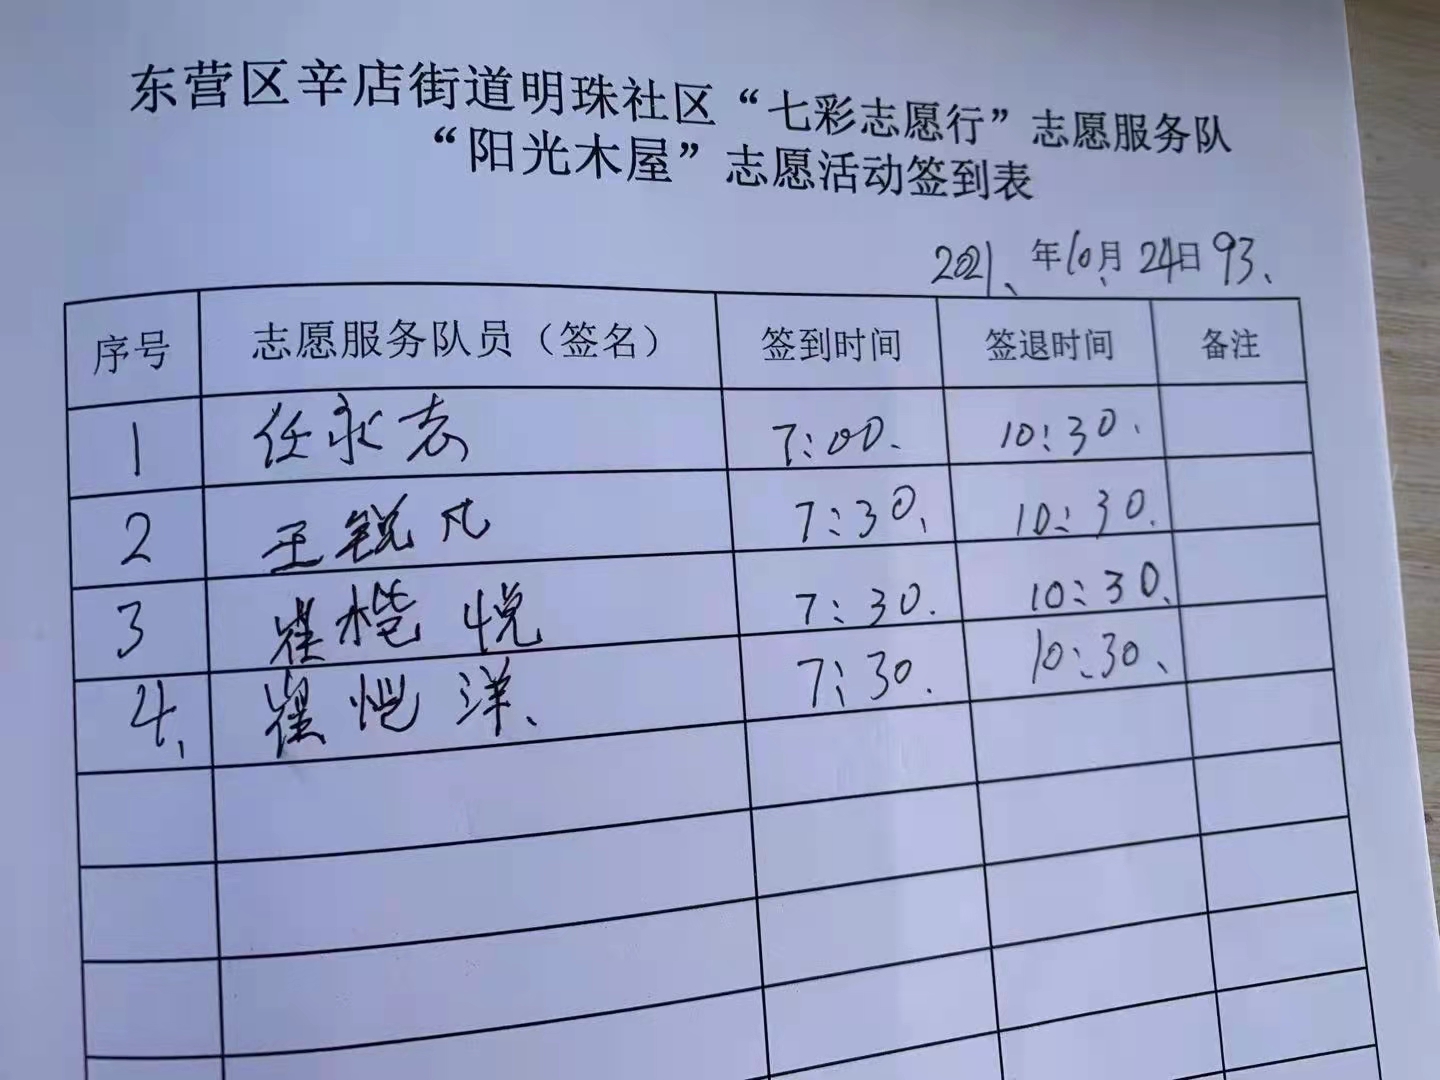 东营区辛店街道明珠社区“七彩志愿行”志愿服务队
“阳光木屋”志愿活动签到表
2021、年10、月24日93、
序号 志愿服务队员（签名） 签到时间 签退时间 备注
1 任永志 7:00、 10:30、
2 王锐凡 7:30、 10:30、
3 崔楷悦 7:30. 10:30、
4、 崔恺洋、 7:30. 10:30、